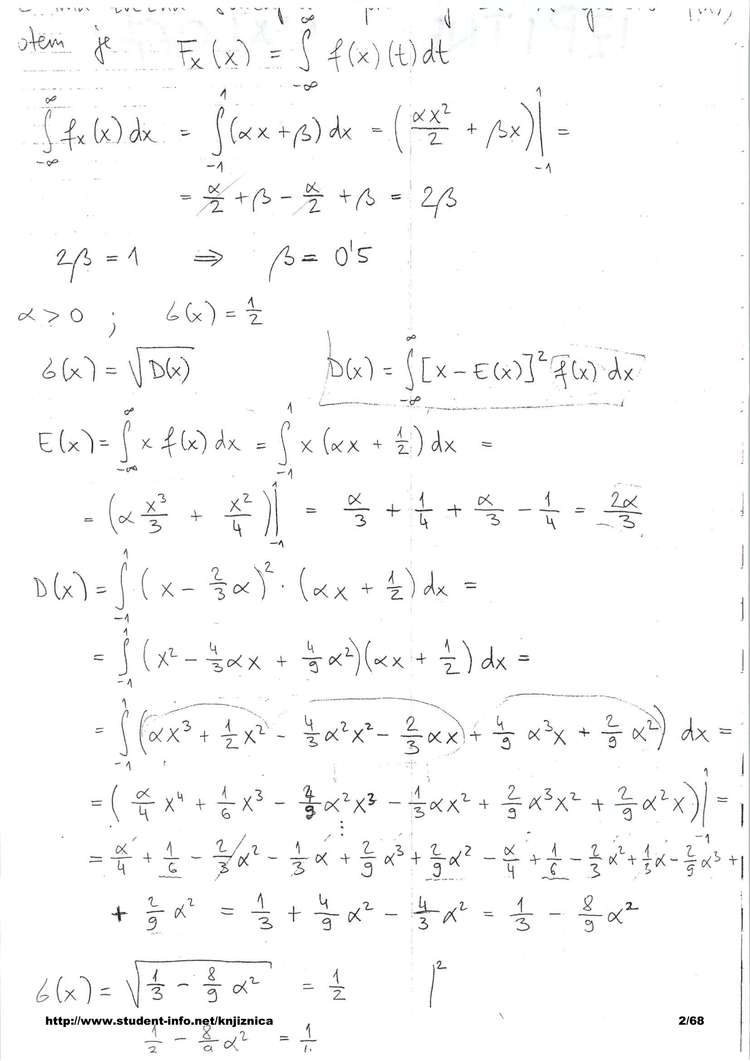 otem je F_x(x) = ∫_{-∞}^{∞} f(x)(t)dt
∫_{-∞}^{∞} f_x(x)dx = ∫_{-1}^{1} (αx+β)dx = (αx²/2 + βx)|_{-1}^{1} =
= α/2 + β - α/2 + β = 2β
2β = 1 ⇒ β = 0'5
α > 0 ; б(x) = 1/2
б(x) = √D(x) D(x) = ∫_{-∞}^{∞} [x - E(x)]² f(x) dx
E(x) = ∫_{-∞}^{∞} x f(x) dx = ∫_{-1}^{1} x (αx + 1/2) dx =
= (α x³/3 + x²/4)|_{-1}^{1} = α/3 + 1/4 + α/3 - 1/4 = 2α/3
D(x) = ∫_{-1}^{1} (x - 2/3 α)² · (αx + 1/2) dx =
= ∫_{-1}^{1} (x² - 4/3 αx + 4/9 α²)(αx + 1/2) dx =
= ∫_{-1}^{1} (αx³ + 1/2 x² - 4/3 α²x² - 2/3 αx + 4/9 α³x + 2/9 α²) dx =
= (α/4 x⁴ + 1/6 x³ - 4/9 α²x³ - 1/3 αx² + 2/9 α³x² + 2/9 α²x)|_{-1}^{1} =
= α/4 + 1/6 - 2/3 α² - 1/3 α + 2/9 α³ + 2/9 α² - α/4 + 1/6 - 2/3 α² + 1/3 α - 2/9 α³ +
+ 2/9 α² = 1/3 + 4/9 α² - 4/3 α² = 1/3 - 8/9 α²
б(x) = √(1/3 - 8/9 α²) = 1/2 |²
http://www.student-info.net/knjiznica 2/68
- 8/9 α² =